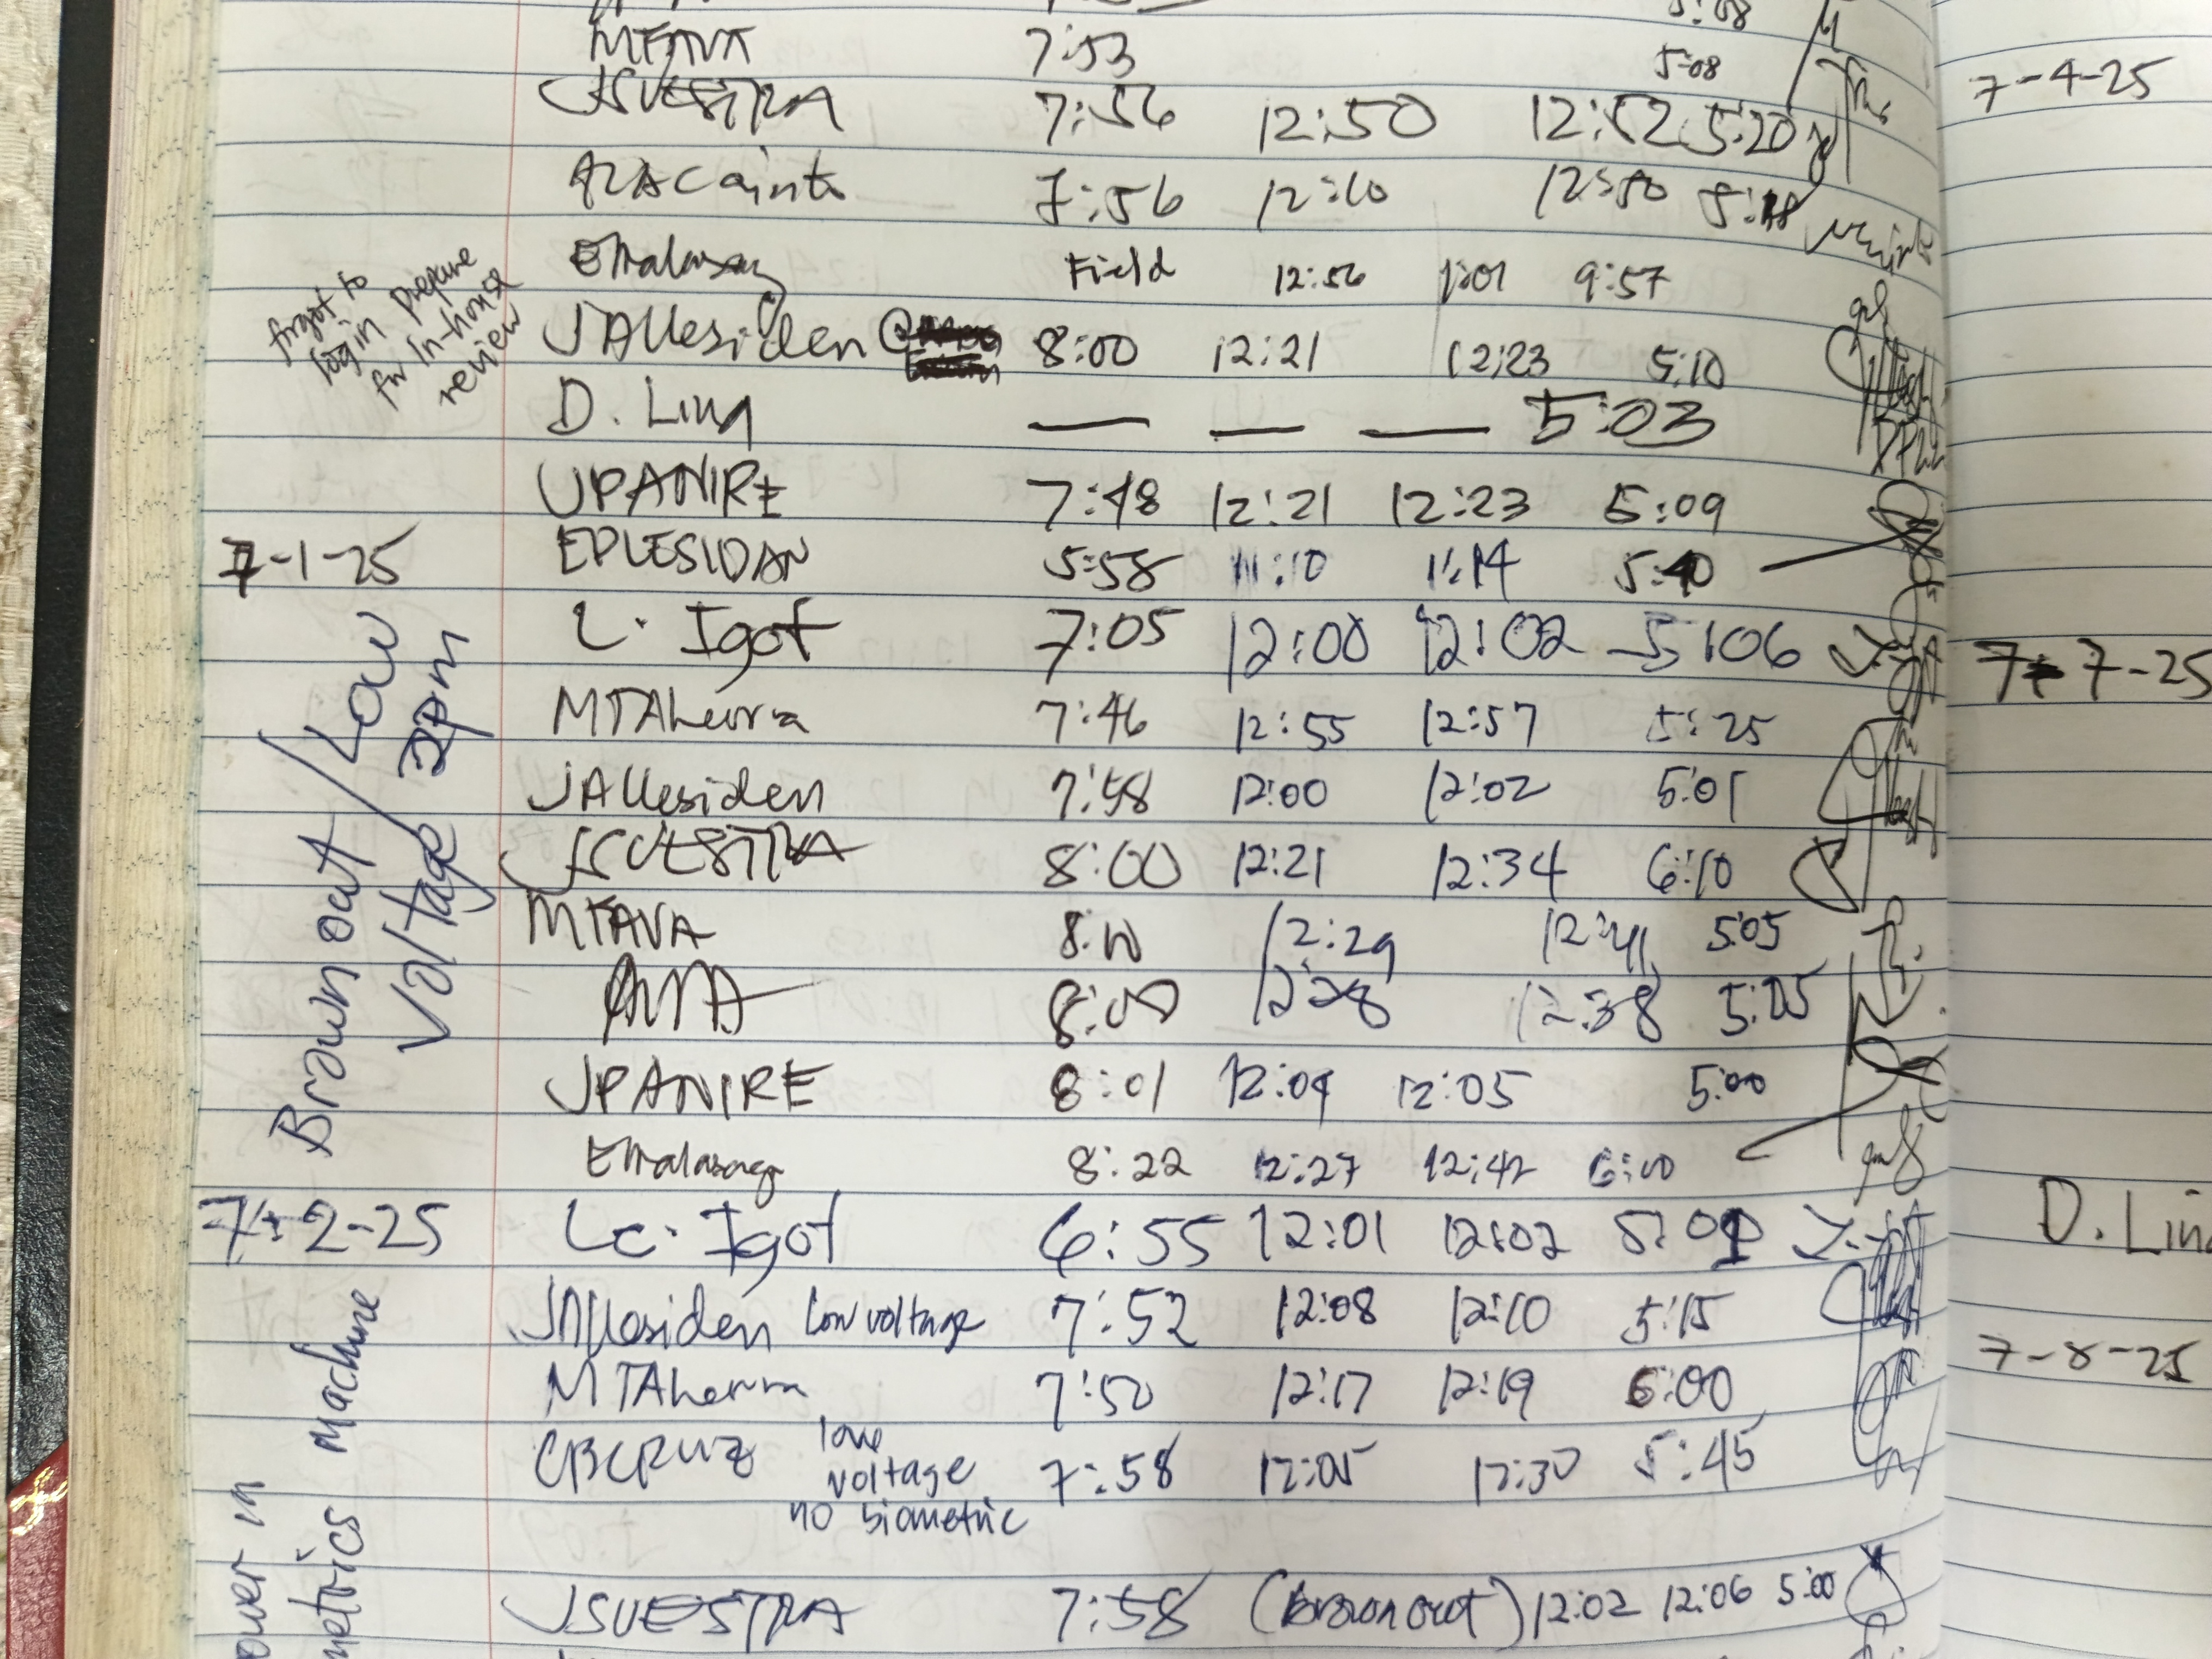 5:08
MTAVA 7:53 5:08
JSVESTRA 7:56 12:50 12:52 5:20
7:56 12:10 12:50
Field 12:56 1:01 9:57
forgot to login prepare for In-house review
JALLesiden @ 8:00 12:21 12:23 5:10
D. Lina — — — 5:03
JPANIRE 7:48 12:21 12:23 5:09
7-1-25 EPLESIDAN 5:58 11:10 11:14 5:40
Brown out / Low Voltage 2pm
L. Igot 7:05 12:00 12:02 5:06
MTAherra 7:46 12:55 12:57 5:25
JALLesiden 7:58 12:00 12:02 5:01
JSVESTRA 8:00 12:21 12:34 6:10
MTAVA 8:10 12:29 12:41 5:05
8:00 12:28 12:38
JPANIRE 8:01 12:04 12:05 5:00
8:22 12:27 12:42 6:00
7-2-25 Lc. Igot 6:55 12:01 12:02
JALLesiden Low voltage 7:52 12:08 12:10 5:15
MTAherra 7:50 12:17 12:19 6:00
CBCRUZ low voltage no biometric 7:58 12:05 12:30 5:45
ower in metrics Machine
JSVESTRA 7:58 (brown out) 12:02 12:06 5:00
7-4-25
7-7-25
D. Lina
7-8-25